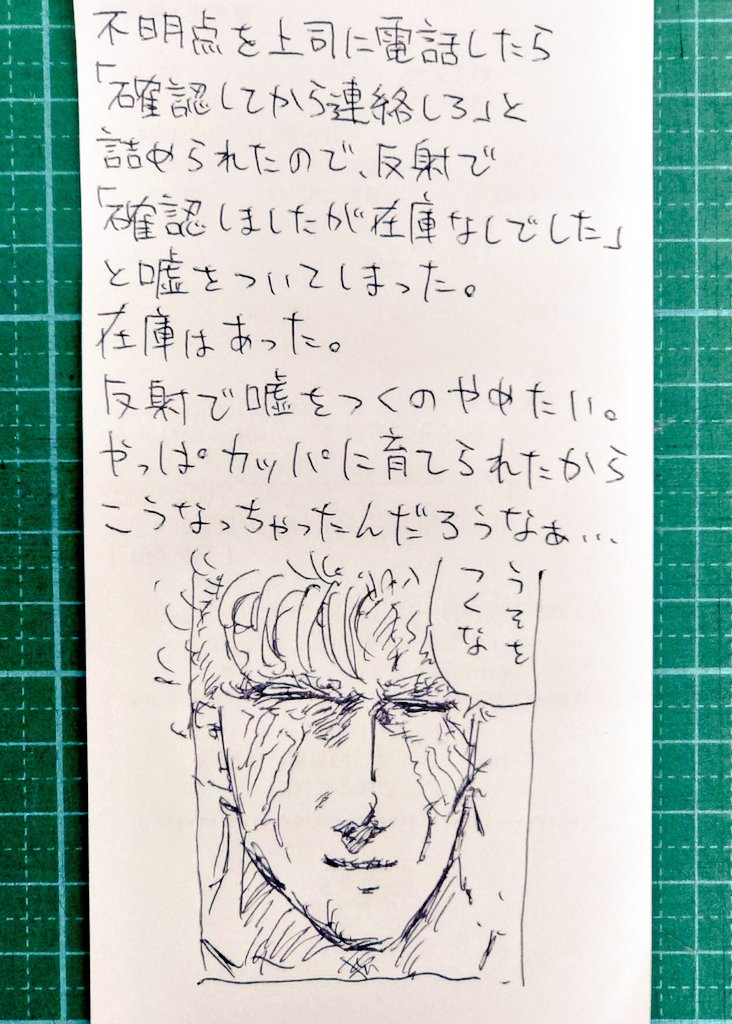 不明点を上司に電話したら
「確認してから連絡しろ」と
詰められたので、反射で
「確認しましたが在庫なしでした」
と嘘をついてしまった。
在庫はあった。
反射で嘘をつくのやめたい。
やっぱカッパに育てられたから
こうなっちゃったんだろうなぁ…
うそを
つくな